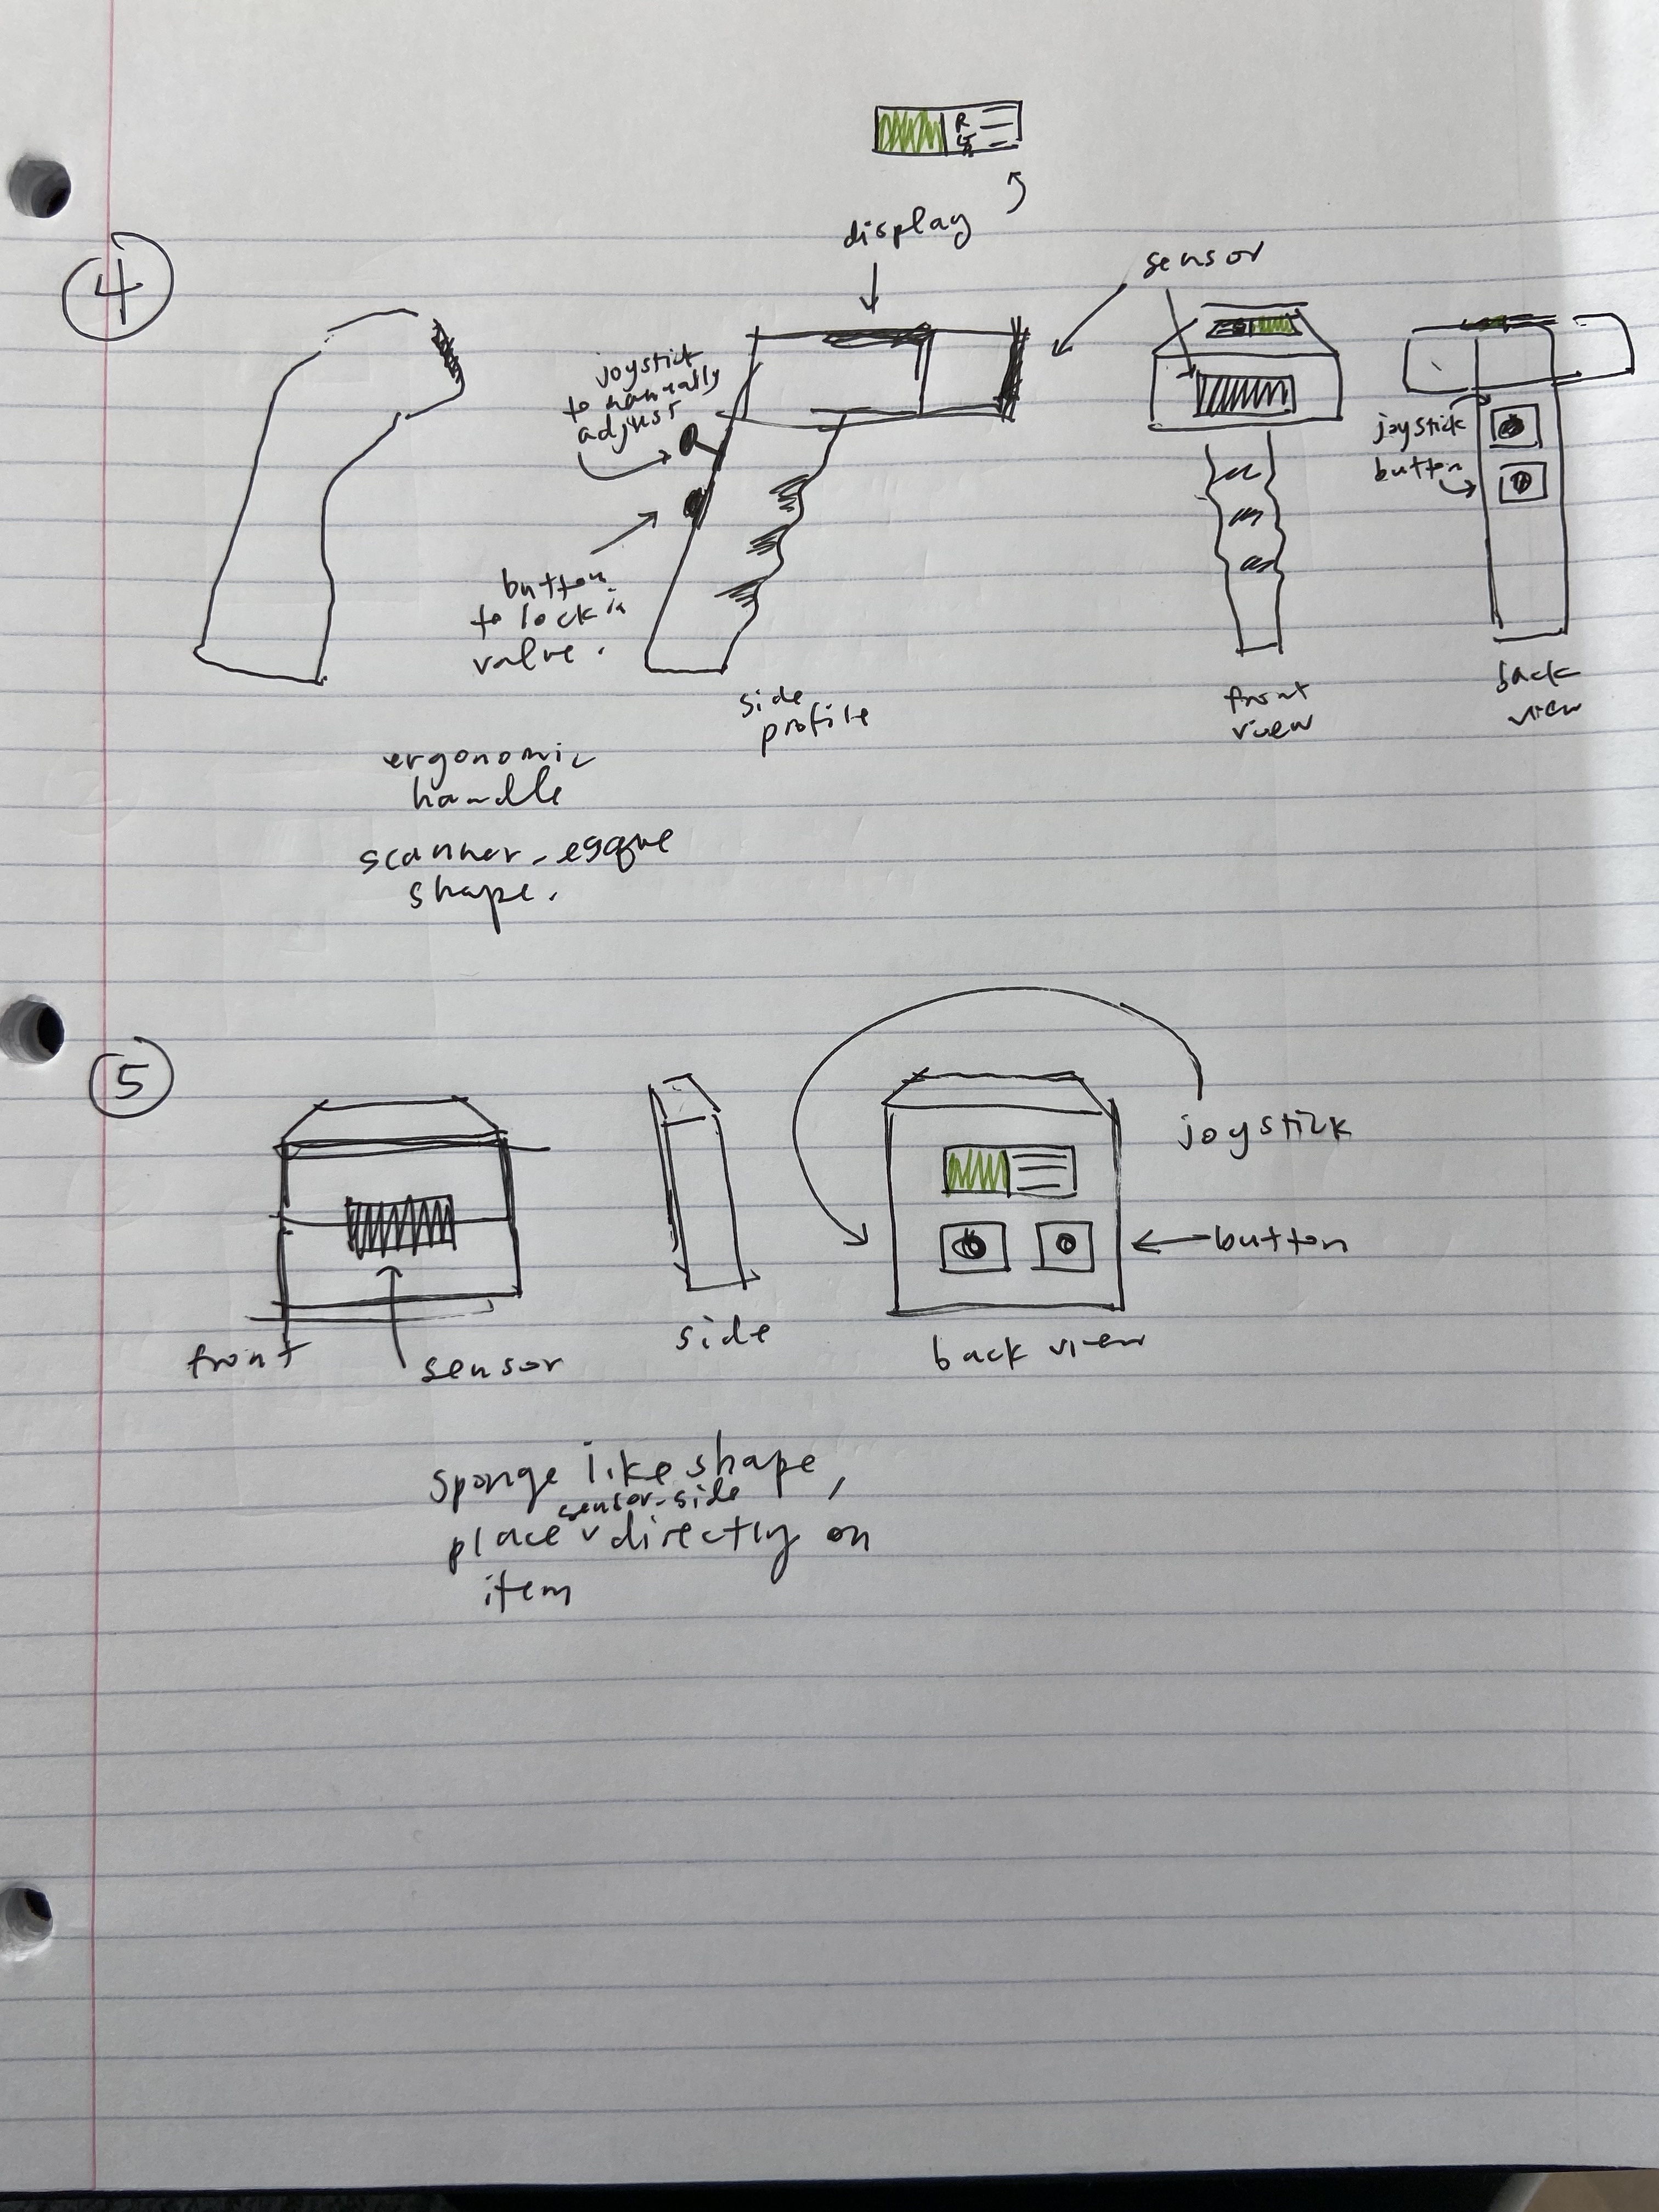 R
G
B
display
sensor
4
joystick
to manually
adjust
joystick
button
button
to lock in
value.
side
profile
front
view
back
view
ergonomic
handle
scanner-esque
shape.
5
joystick
button
front
sensor
side
back view
sponge like shape,
sensor-side
place directly on
item